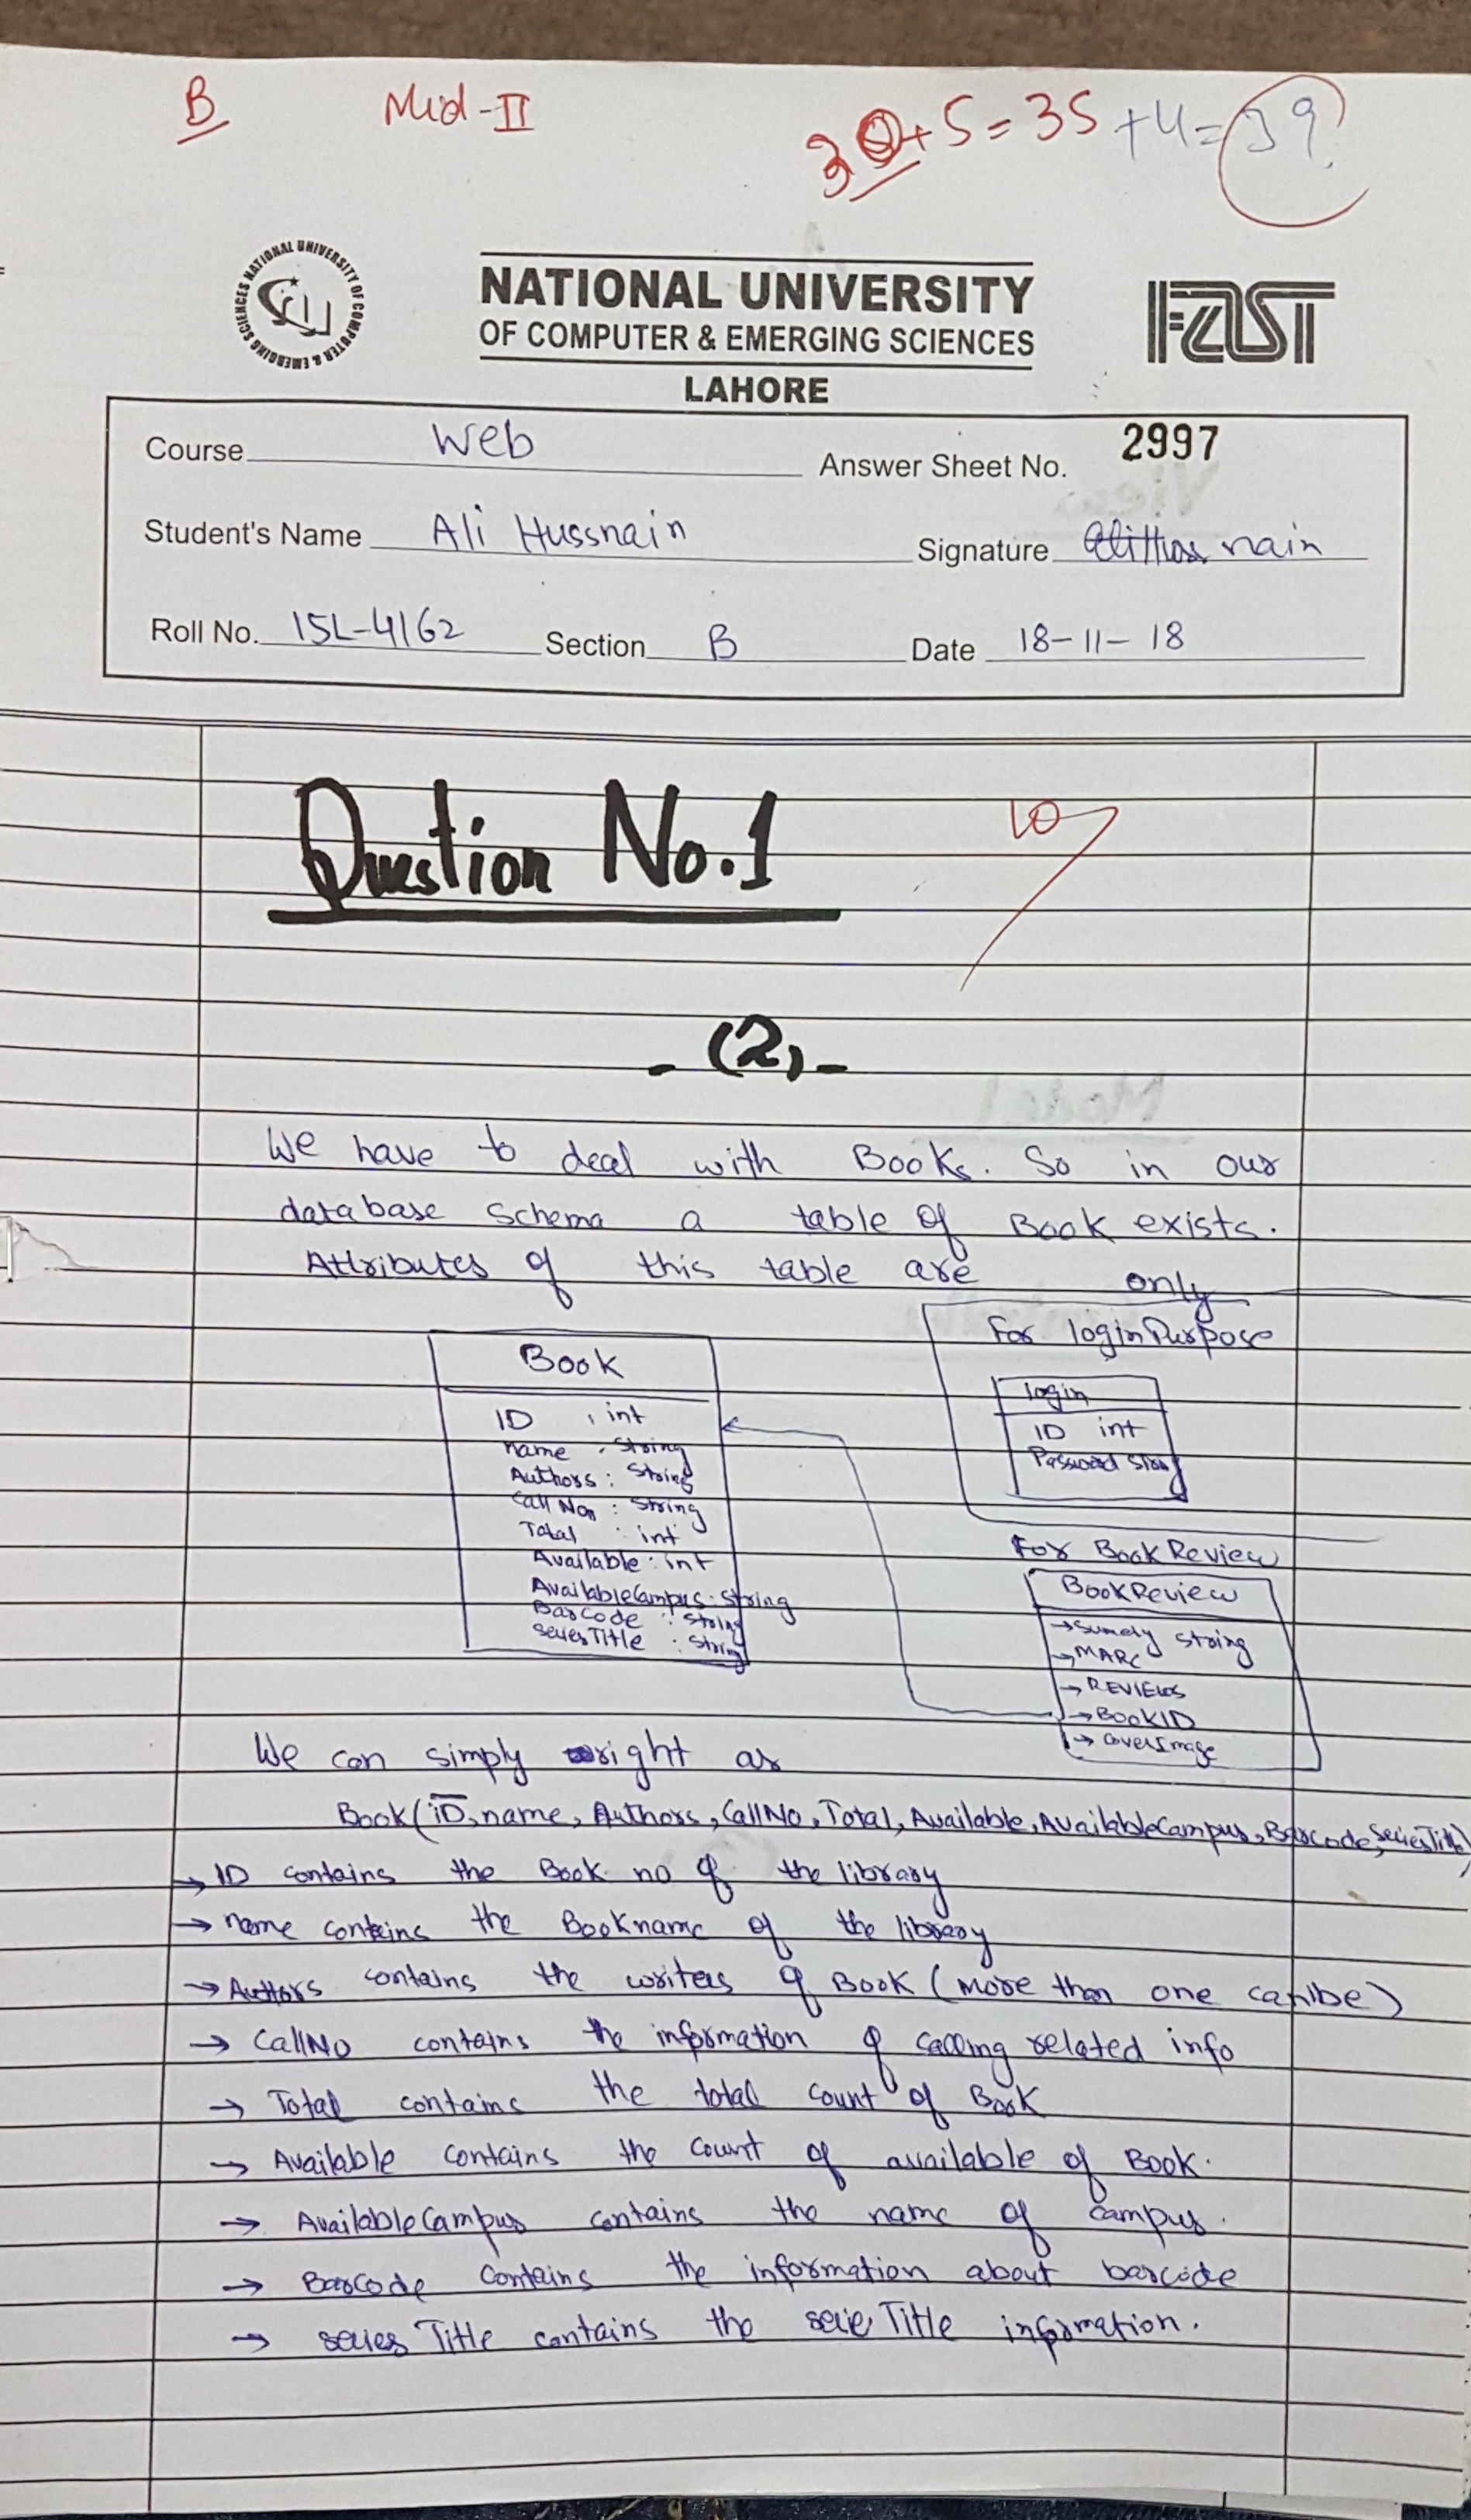 B Mid-II 30+5=35 +4=39
NATIONAL UNIVERSITY OF COMPUTER & EMERGING SCIENCES
NATIONAL UNIVERSITY
OF COMPUTER & EMERGING SCIENCES
LAHORE
FAST
Course Web Answer Sheet No. 2997
Student's Name Ali Hussnain Signature
Roll No. 15L-4162 Section B Date 18-11-18
Question No.1
10
-(2)-
We have to deal with Books. So in our
database schema a table of Book exists.
Attributes of this table are
only
For login Purpose
login
ID int
Password
Book
ID : int
name : String
Authors : String
Call No : String
Total : int
Available : int
AvailableCampus : String
BarCode : String
seriesTitle : String
For Book Review
BookReview
→ string
→ MARC
→ REVIEWS
→ BOOKID
→ coverImage
We can simply right as
Book(ID, name, Authors, CallNo, Total, Available, AvailableCampus, Barcode, SeriesTitle)
→ ID contains the Book no of the library
→ name contains the Bookname of the library
→ Authors contains the writers of Book (more than one can be)
→ CallNo contains the information of calling related info
→ Total contains the total count of Book
→ Available contains the count of available of Book.
→ AvailableCampus contains the name of campus.
→ BarCode contains the information about barcode
→ series Title contains the serie Title information.